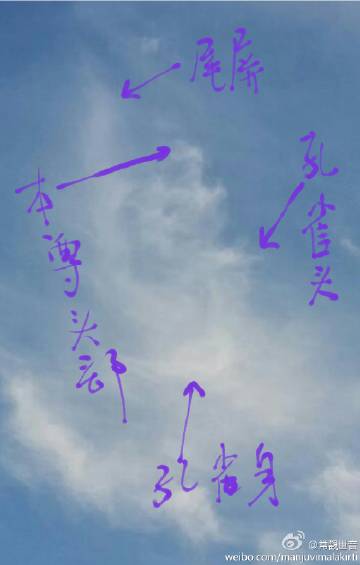 尾屏
孔雀头
本尊头部
孔雀身
@常觀世音
weibo.com/manjuvimalakirti